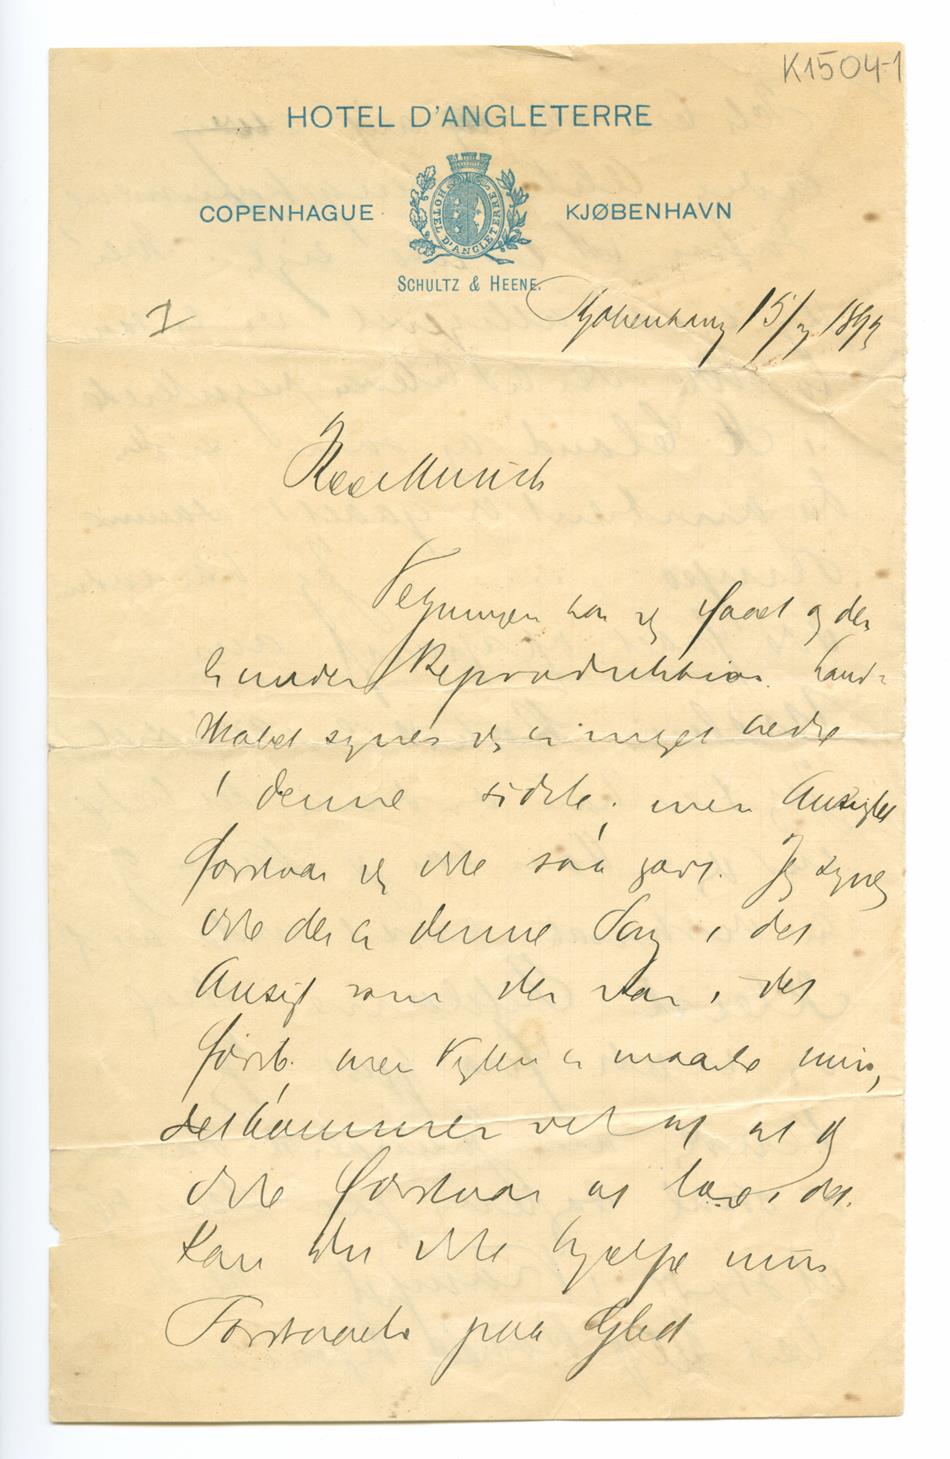 K1504-1
HOTEL D'ANGLETERRE
COPENHAGUE KJØBENHAVN
HOTEL D'ANGLETERRE
SCHULTZ & HEENE.
1 Kjøbenhavn 15/ 189
Kjære Munch
Tegningen har jeg faaet og den
er under Reproduktion. Haand-
malet synes jeg er meget bedre
i denne sidste, men Ansigtet
forstaar jeg ikke saa godt. Jeg synes
ikke der er denne Sorg i det
Ansigt som der var i det
første, men Feilen er maaske min,
det kommer vel af at jeg
ikke forstaar at læse i det.
Kan Du ikke hjælpe min
Forstaaelse paa Gled